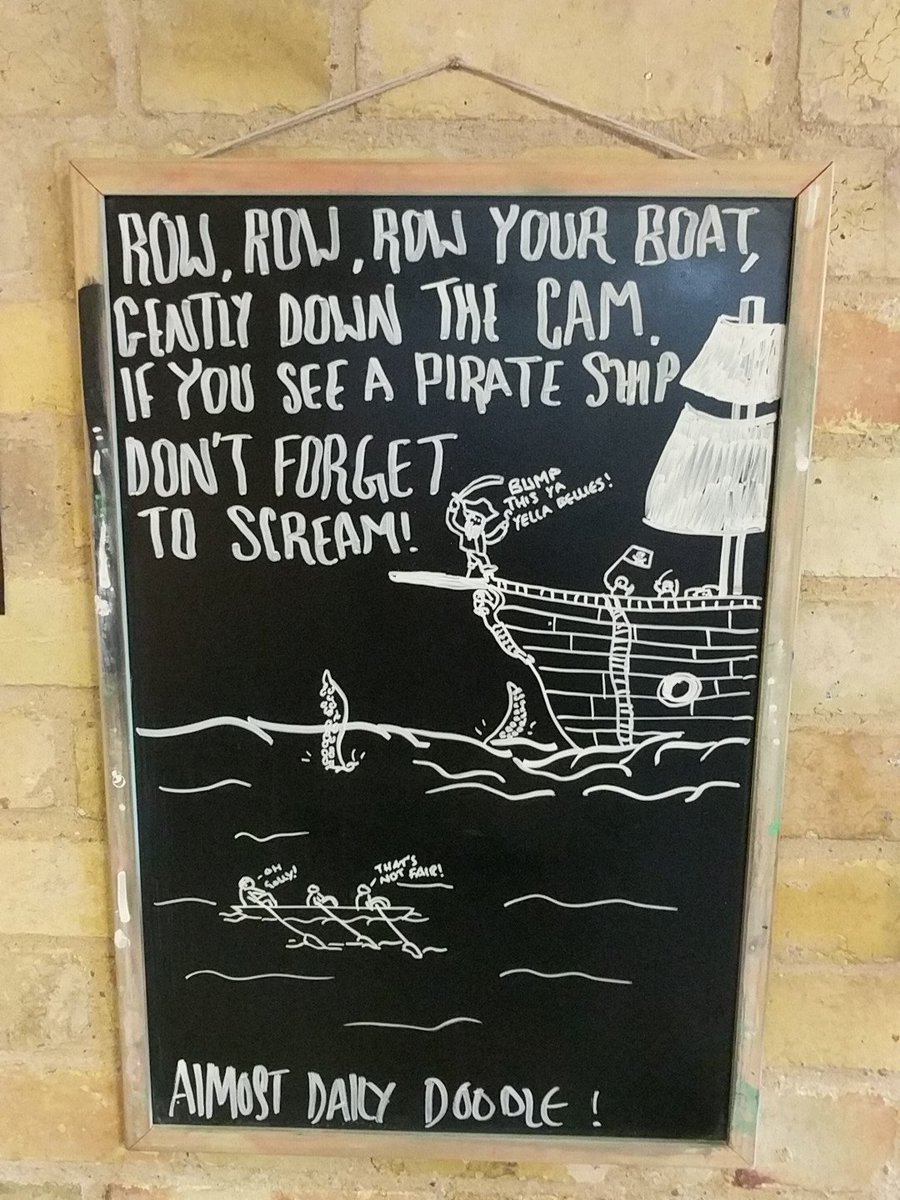 ROW, ROW, ROW YOUR BOAT,
GENTLY DOWN THE CAM.
IF YOU SEE A PIRATE SHIP
DON'T FORGET
TO SCREAM!
BUMP
THIS YA
YELLA BELLIES!
OH
GOLLY!
THAT'S
NOT FAIR!
ALMOST DAILY DOODLE!